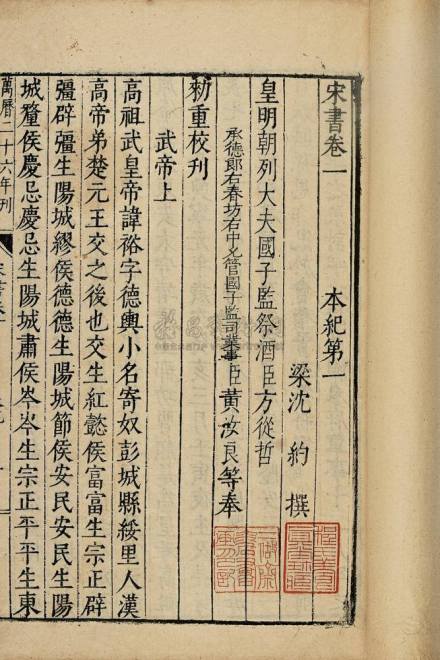 宋書卷一　本紀第一
梁沈約撰
皇明朝列大夫國子監祭酒臣方從哲
承德郎右春坊右中允管國子監司業事臣黃汝良等奉
勑重校刊
武帝上
高祖武皇帝諱裕字德輿小名寄奴彭城縣綏里人漢
高帝弟楚元王交之後也交生紅懿侯富富生宗正辟
彊辟彊生陽城繆侯德德生陽城節侯安民安民生陽
城釐侯慶忌慶忌生陽城肅侯岑岑生宗正平平生東
萬曆二十六年刊